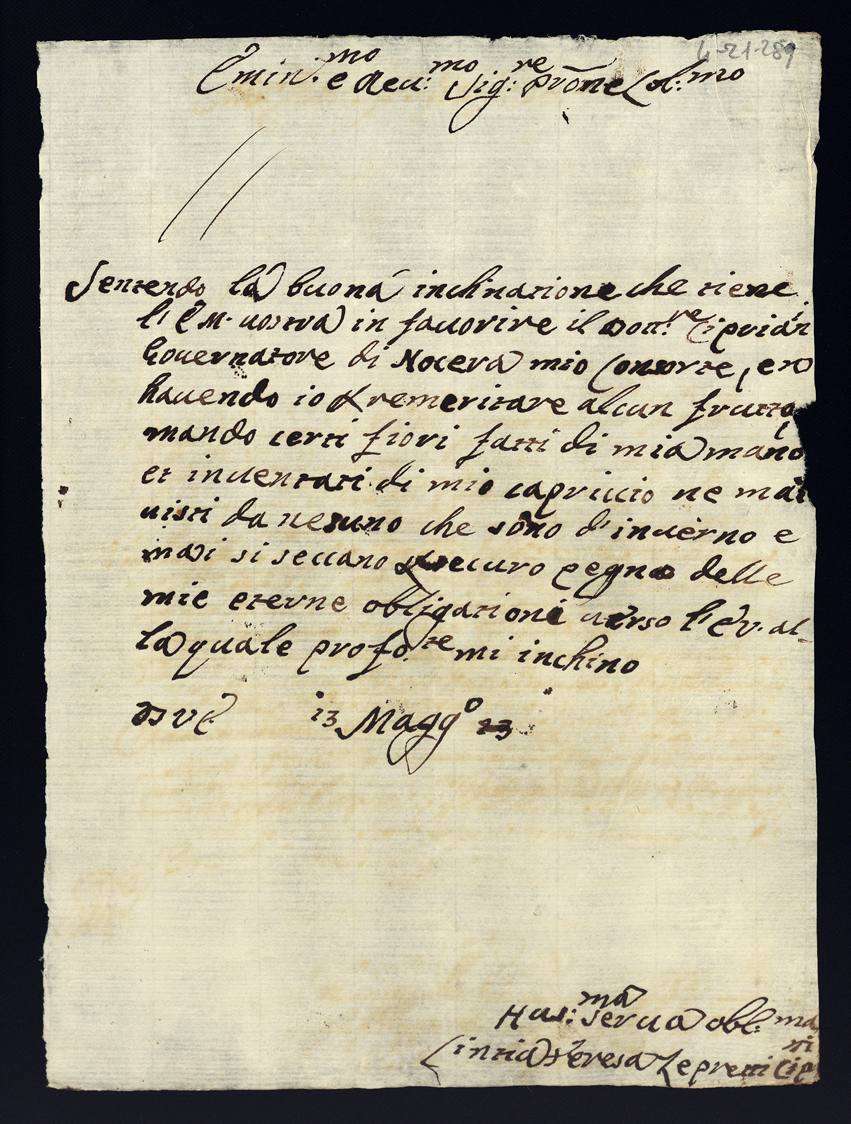 4-21-289
Emin.mo e Reu:mo Sig:re Prōne Col:mo
Sentendo la buona inclinatione che tiene
l'E M. uostra in fauorire il Dott.re Ciprian
Gouernatore di Nocera mio Consorte, et
hauendo io remeritare alcun frutto
mando certi fiori fatti di mia mano
et inuentati di mio capriccio ne mai
uisti da nesuno che sono d'inuerno e
mai si seccano securo pegno delle
mie eterne obligationi uerso l'E.V. al-
la quale profo.te mi inchino
DVE 13 Magg.o
Hus:ma serua obb:ma
Cintia Teresa Lepretti Cip
ni